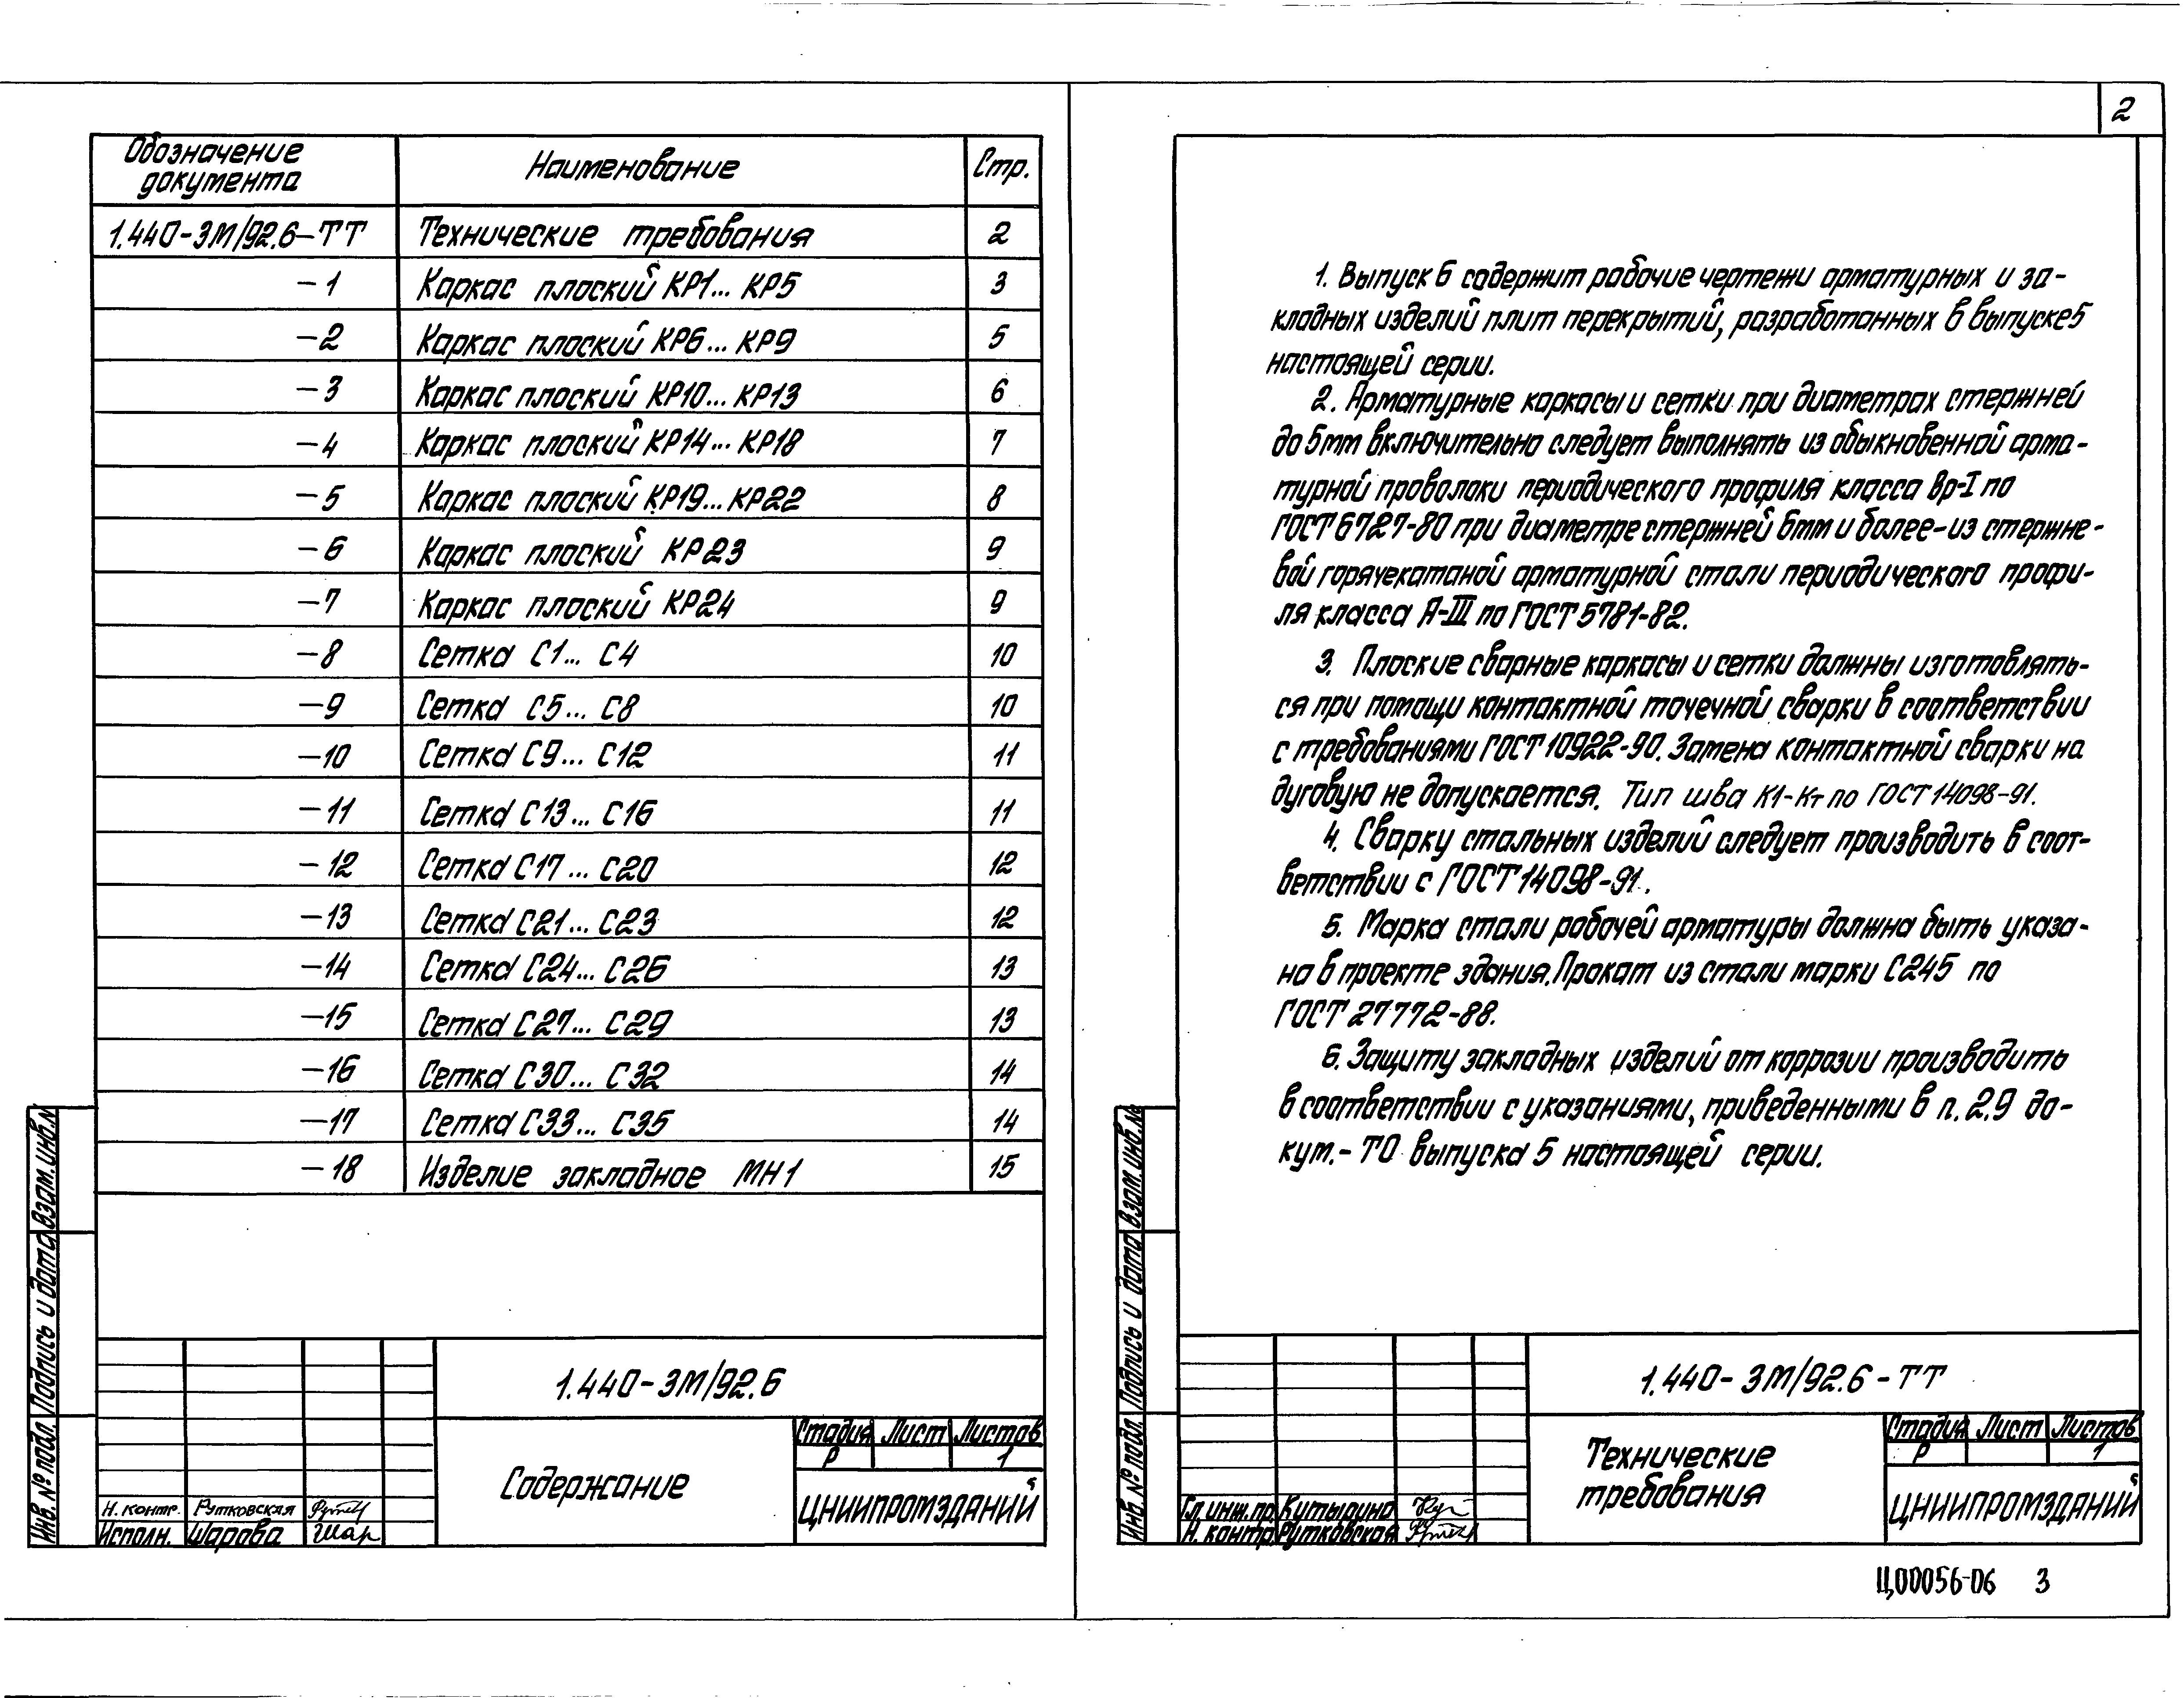 Обозначение
документа
Наименование
Стр.
1.440-3М/92.6-ТТ Технические требования 2
-1 Каркас плоский КР1... КР5 3
-2 Каркас плоский КР6... КР9 5
-3 Каркас плоский КР10... КР13 6
-4 Каркас плоский КР14... КР18 7
-5 Каркас плоский КР19... КР22 8
-6 Каркас плоский КР23 9
-7 Каркас плоский КР24 9
-8 Сетка С1... С4 10
-9 Сетка С5... С8 10
-10 Сетка С9... С12 11
-11 Сетка С13... С16 11
-12 Сетка С17... С20 12
-13 Сетка С21... С23 12
-14 Сетка С24... С26 13
-15 Сетка С27... С29 13
-16 Сетка С30... С32 14
-17 Сетка С33... С35 14
-18 Изделие закладное МН1 15
Инв. № подл. Подпись и дата Взам. инв. №
1.440-3М/92.6
Содержание
Стадия Лист Листов
Р 1
ЦНИИПРОМЗДАНИЙ
Н. контр. Рутковская
Исполн. Шарова Шар
2
1. Выпуск 6 содержит рабочие чертежи арматурных и за-
кладных изделий плит перекрытий, разработанных в выпуске 5
настоящей серии.
2. Арматурные каркасы и сетки при диаметрах стержней
до 5мм включительно следует выполнять из обыкновенной арма-
турной проволоки периодического профиля класса Вр-I по
ГОСТ 6727-80 при диаметре стержней 6мм и более-из стержне-
вой горячекатаной арматурной стали периодического профи-
ля класса А-III по ГОСТ 5781-82.
3. Плоские сварные каркасы и сетки должны изготовлять-
ся при помощи контактной точечной сварки в соответствии
с требованиями ГОСТ 10922-90. Замена контактной сварки на
дуговую не допускается. Тип шва К1-Кт по ГОСТ 14098-91.
4. Сварку стальных изделий следует производить в соот-
ветствии с ГОСТ 14098-91.
5. Марка стали рабочей арматуры должна быть указа-
на в проекте здания. Прокат из стали марки С245 по
ГОСТ 27772-88.
6. Защиту закладных изделий от коррозии производить
в соответствии с указаниями, приведенными в п. 2.9 до-
кум.- ТО выпуска 5 настоящей серии.
Инв. № подл. Подпись и дата Взам. инв. №
1.440-3М/92.6-ТТ
Технические
требования
Стадия Лист Листов
Р 1
ЦНИИПРОМЗДАНИЙ
Гл. инж. пр. Кутырина
Н. контр. Рутковская
Ц00056-06 3